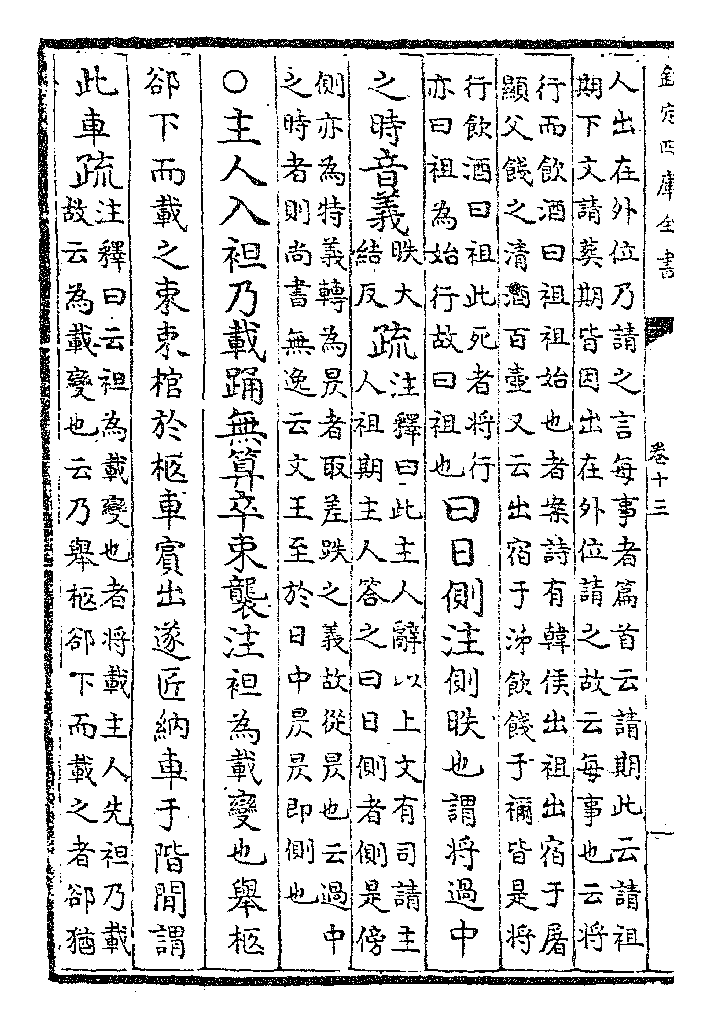 欽定四庫全書
卷十三
人出在外位乃請之言每事者篇首云請期此云請祖
期下文請葬期皆因出在外位請之故云每事也云將
行而飲酒曰祖祖始也者案詩有韓侯出祖出宿于屠
顯父餞之清酒百壺又云出宿于泲飲餞于禰皆是將
行飲酒曰祖此死者將行
亦曰祖為始行故曰祖也
曰日側注側昳也謂將過中
之時音義
昳大
結反
疏
注釋曰此主人辭以上文有司請主
人祖期主人答之曰日側者側是傍
側亦為特義轉為昃者取差跌之義故從昃也云過中
之時者則尚書無逸云文王至於日中昃昃即側也
○主人入袒乃載踊無算卒束襲注袒為載變也舉柩
郤下而載之束束棺於柩車賓出遂匠納車于階間謂
此車疏
注釋曰云袒為載變也者將載主人先袒乃載
故云為載變也云乃舉柩郤下而載之者郤猶